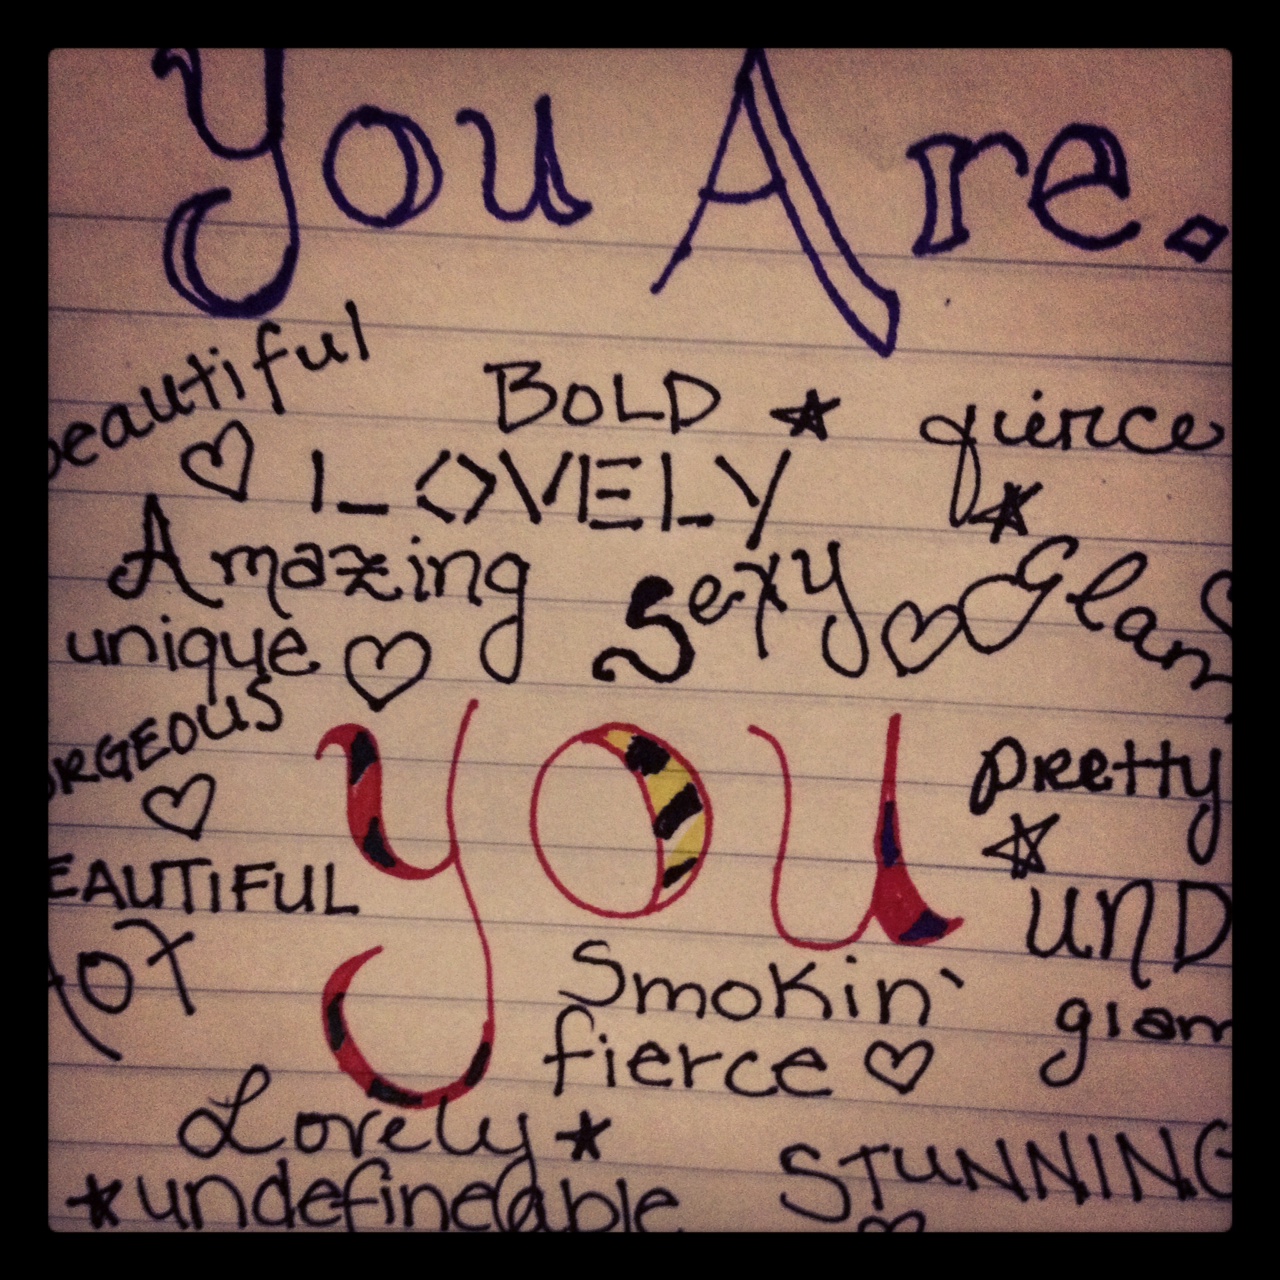 You Are.
beautiful
BOLD
fierce
LOVELY
Amazing
sexy
Glam
unique
ORGEOUS
YOU
pretty
EAUTIFUL
UND
HOT
Smokin'
glam
fierce
Lovely
STUNNING
undefineable